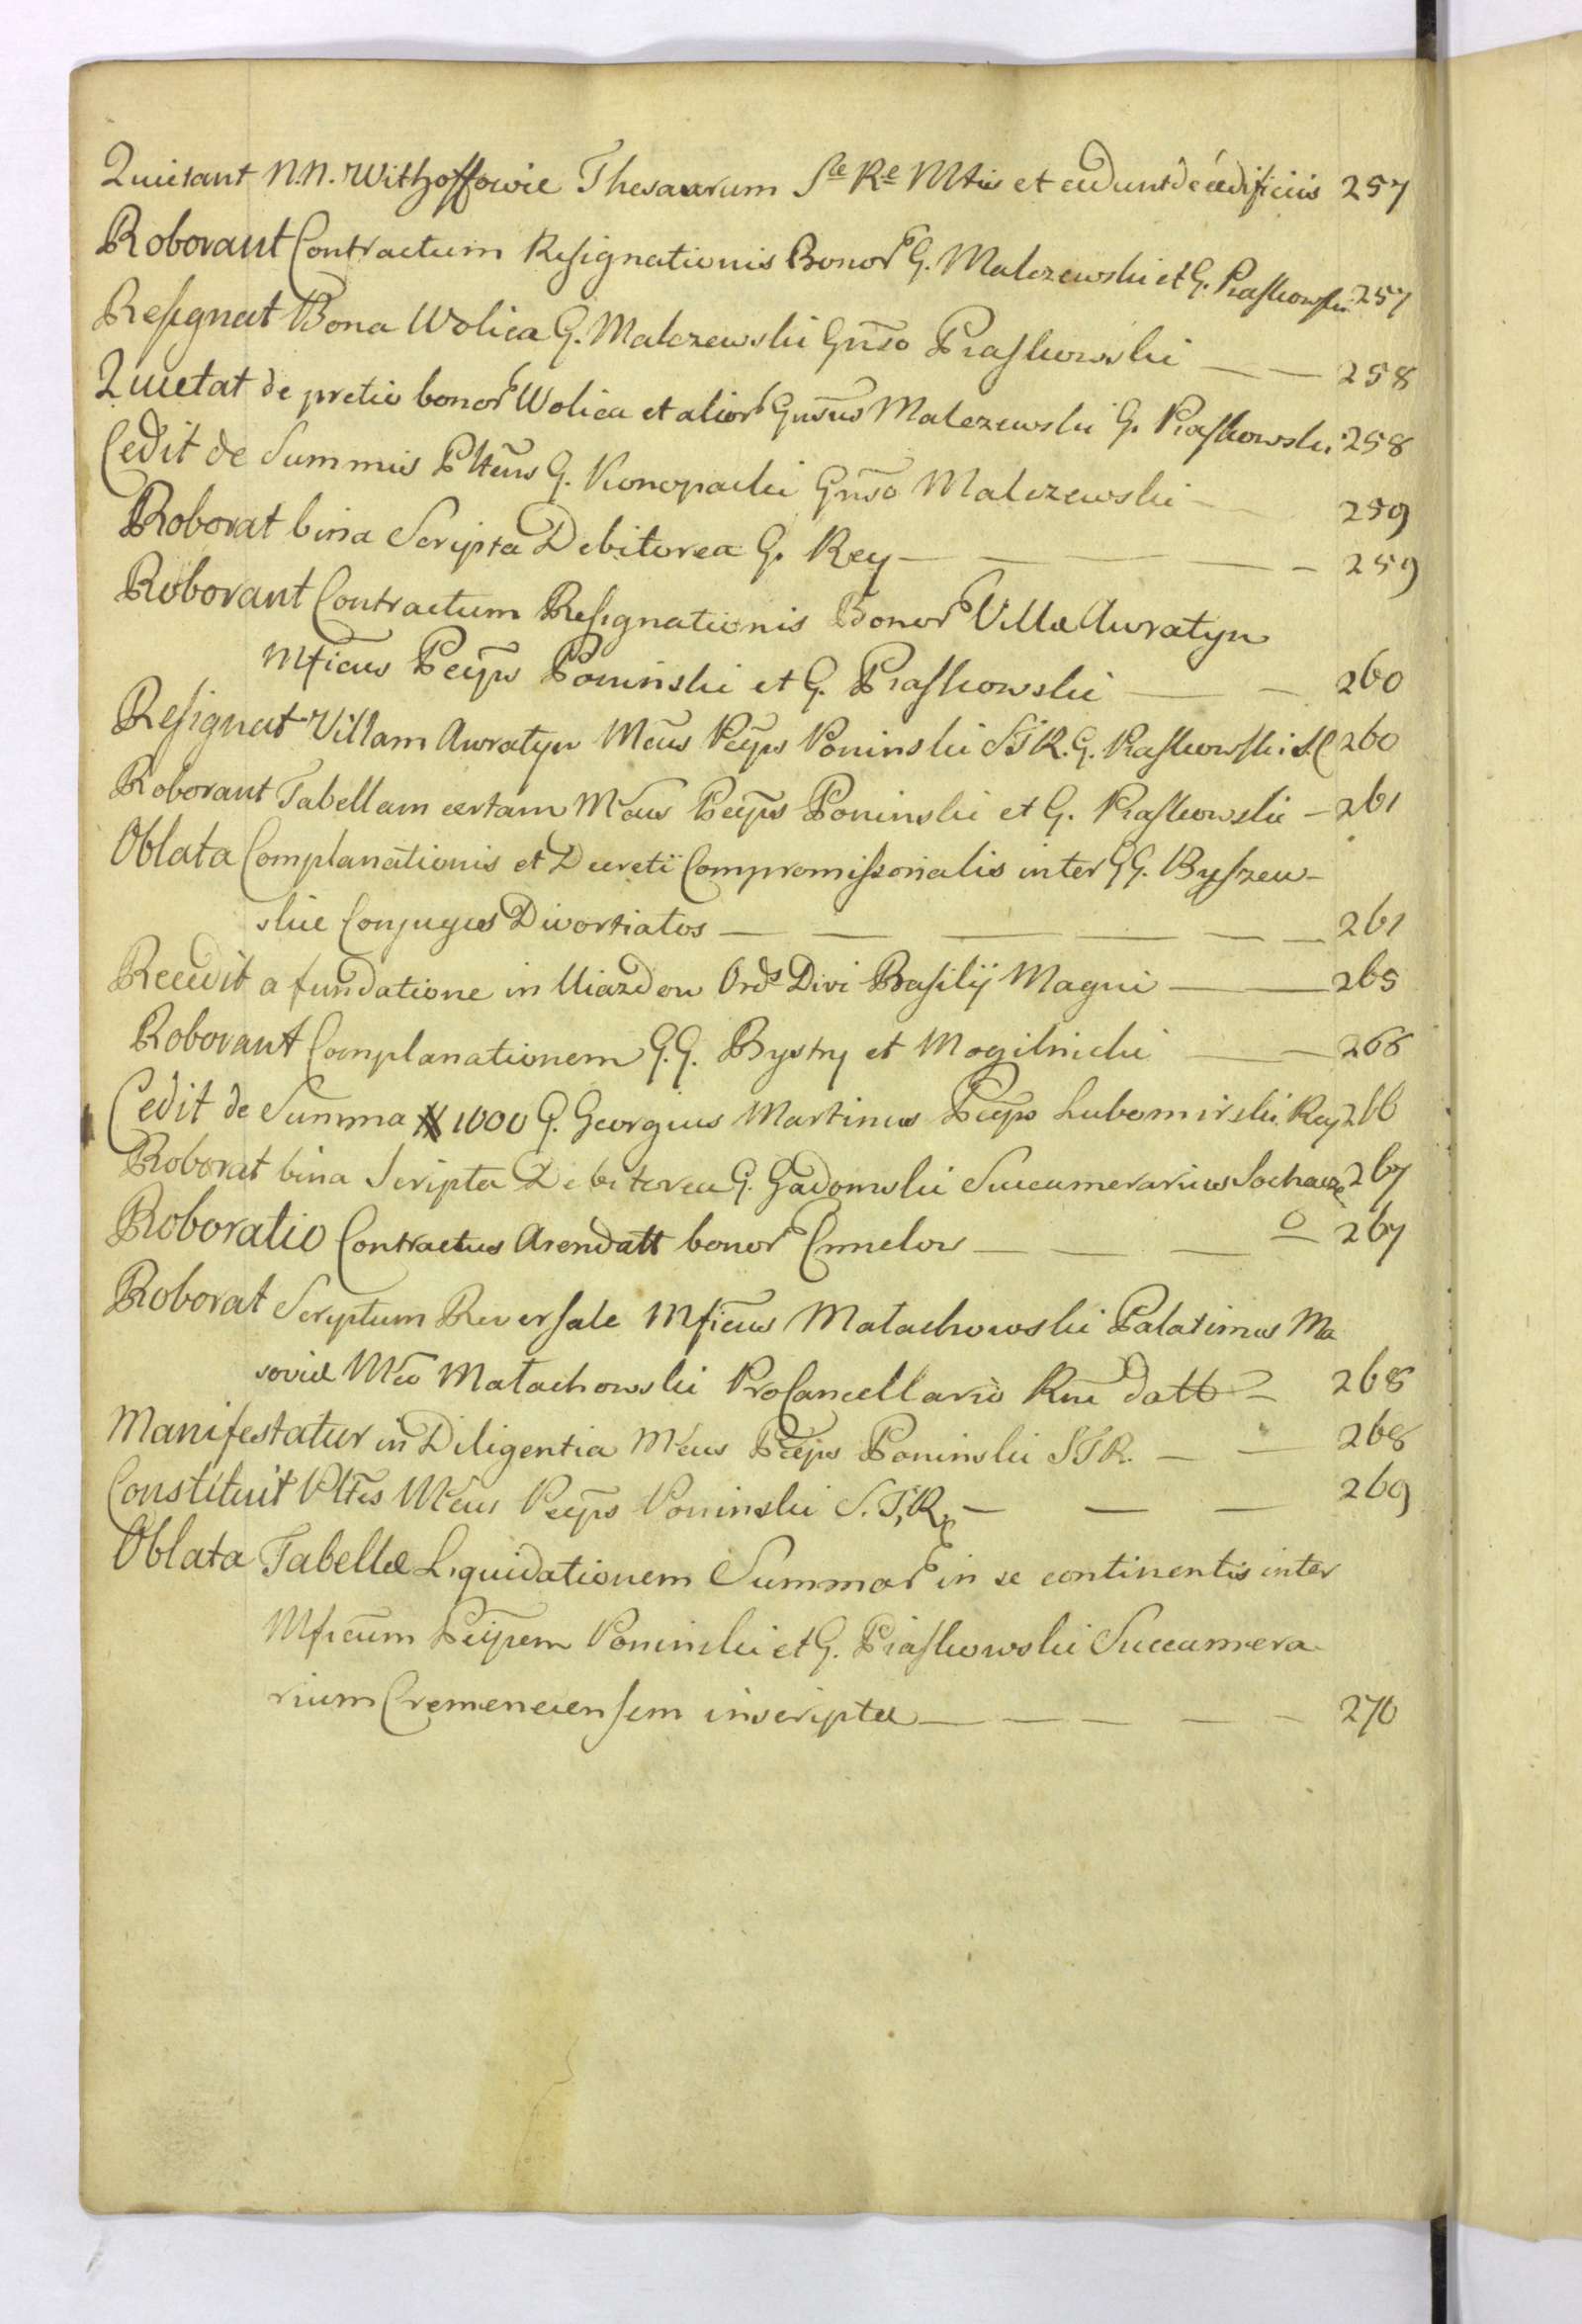 Quietant N.N. Withoffowie Thesaurum Sae Rae Mttis et cedunt de ædificiis 257
Roborant Contractum Resignationis Bonor G. Malczewski et G. Piaskowski 257
Resignat Bona Wolica G. Malczewski Gnso Piaskowski — — 258
Quietat de pretio bonor Wolica et alior Gnsus Malczewski G. Piaskowski 258
Cedit de Summis Pltens G. Konopacki Gnso Malczewski — 259
Roborat bina Scripta Debitorea G. Rey — — — — 259
Roborant Contractum Resignationis Bonor Villæ Auratyn
Mficus Pceps Poninski et G. Piaskowski — — 260
Resignat Villam Auratyn Mcus Pceps Poninski STR. G. Piaskowski S.C 260
Roborant Tabellam certam Mcus Pceps Poninski et G. Piaskowski — 261
Oblata Complanationis et Decreti Compromissorialis inter GG. Byszew-
skie Conjuges Divortiatos — — — — — — 261
Recedit a fundatione in Uiazdow Ords Divi Basilij Magni — — 265
Roborant Complanationem G.G. Bystry et Mogilnicki — — 266
Cedit de Summa # 1000 G. Georgius Martinus Pceps Lubomirski. Rey 266
Roborat bina Scripta Debitorea G. Gadomski Succamerarius Sochacze 267
Roboratio Contractus Arendatt bonor Cmielow — — — 267
Roborat Scriptum Reversale Mficus Małachowski Palatinus Ma
soviæ Mco Małachowski ProCancellario Rni datt — 268
Manifestatur in Diligentia Mcus Pceps Poninski STR. — — 268
Constituit Pltes Mcus Pceps Poninski S.T.R. — — — 269
Oblata Tabellæ Liquidationem Summar in se continentis inter
Mficum Pcipem Poninski et G. Piaskowski Succamera
rium Cremenecensem inscriptæ — — — — — 270